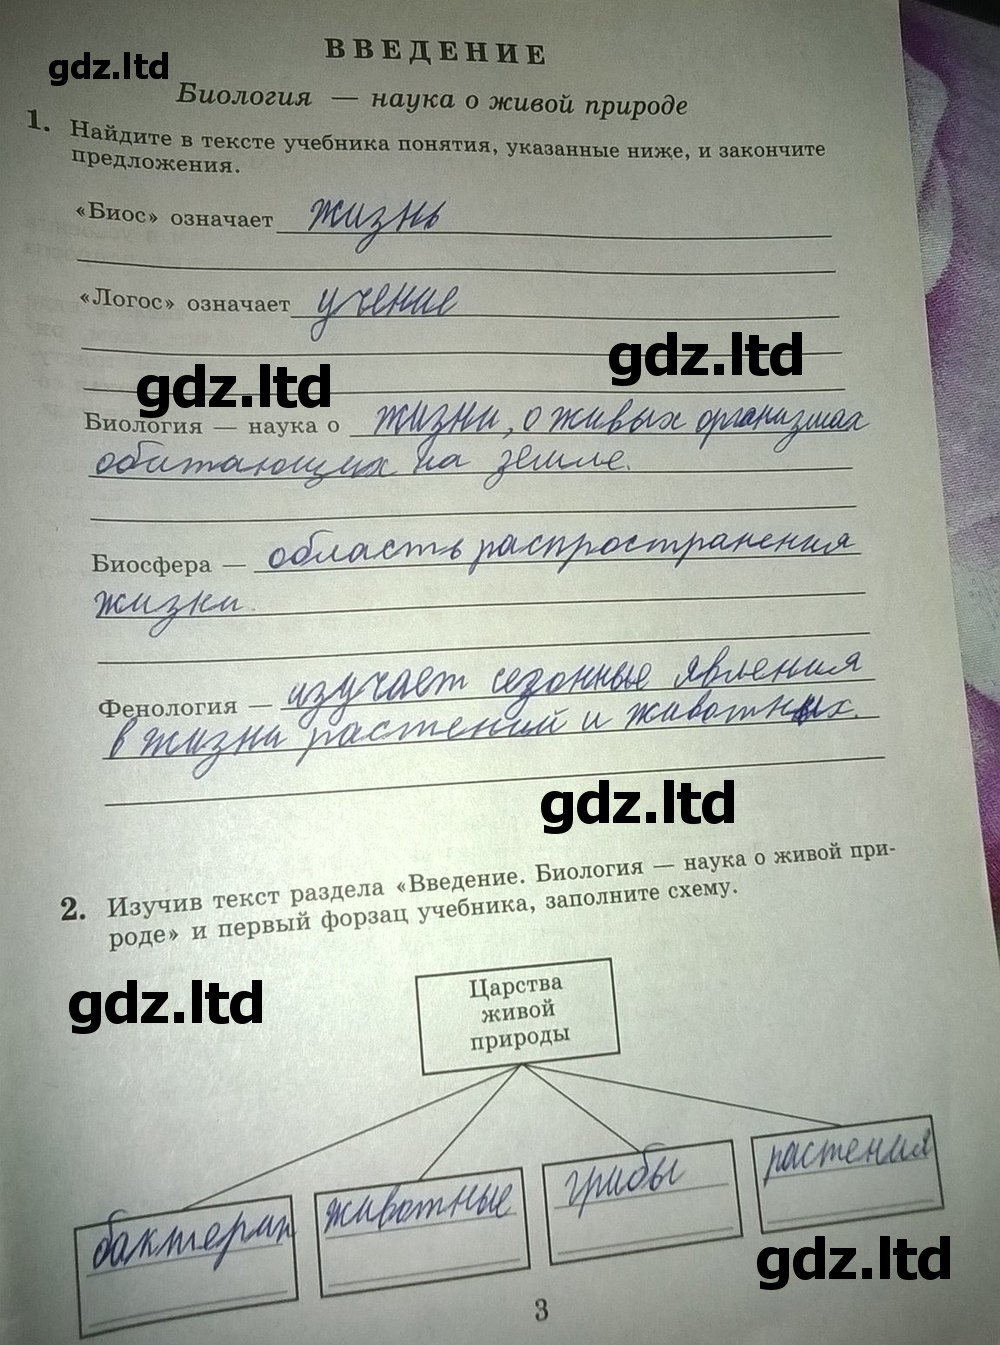 gdz.ltd
ВВЕДЕНИЕ
Биология — наука о живой природе
1. Найдите в тексте учебника понятия, указанные ниже, и закончите
предложения.
«Биос» означает жизнь
«Логос» означает учение
gdz.ltd
gdz.ltd
Биология — наука о жизни, о живых организмах
обитающих на земле.
Биосфера — область распространения
жизни.
Фенология — изучает сезонные явления
в жизни растений и животных.
gdz.ltd
2. Изучив текст раздела «Введение. Биология — наука о живой при-
роде» и первый форзац учебника, заполните схему.
gdz.ltd
Царства
живой
природы
бактерии
животные
грибы
растения
gdz.ltd
3